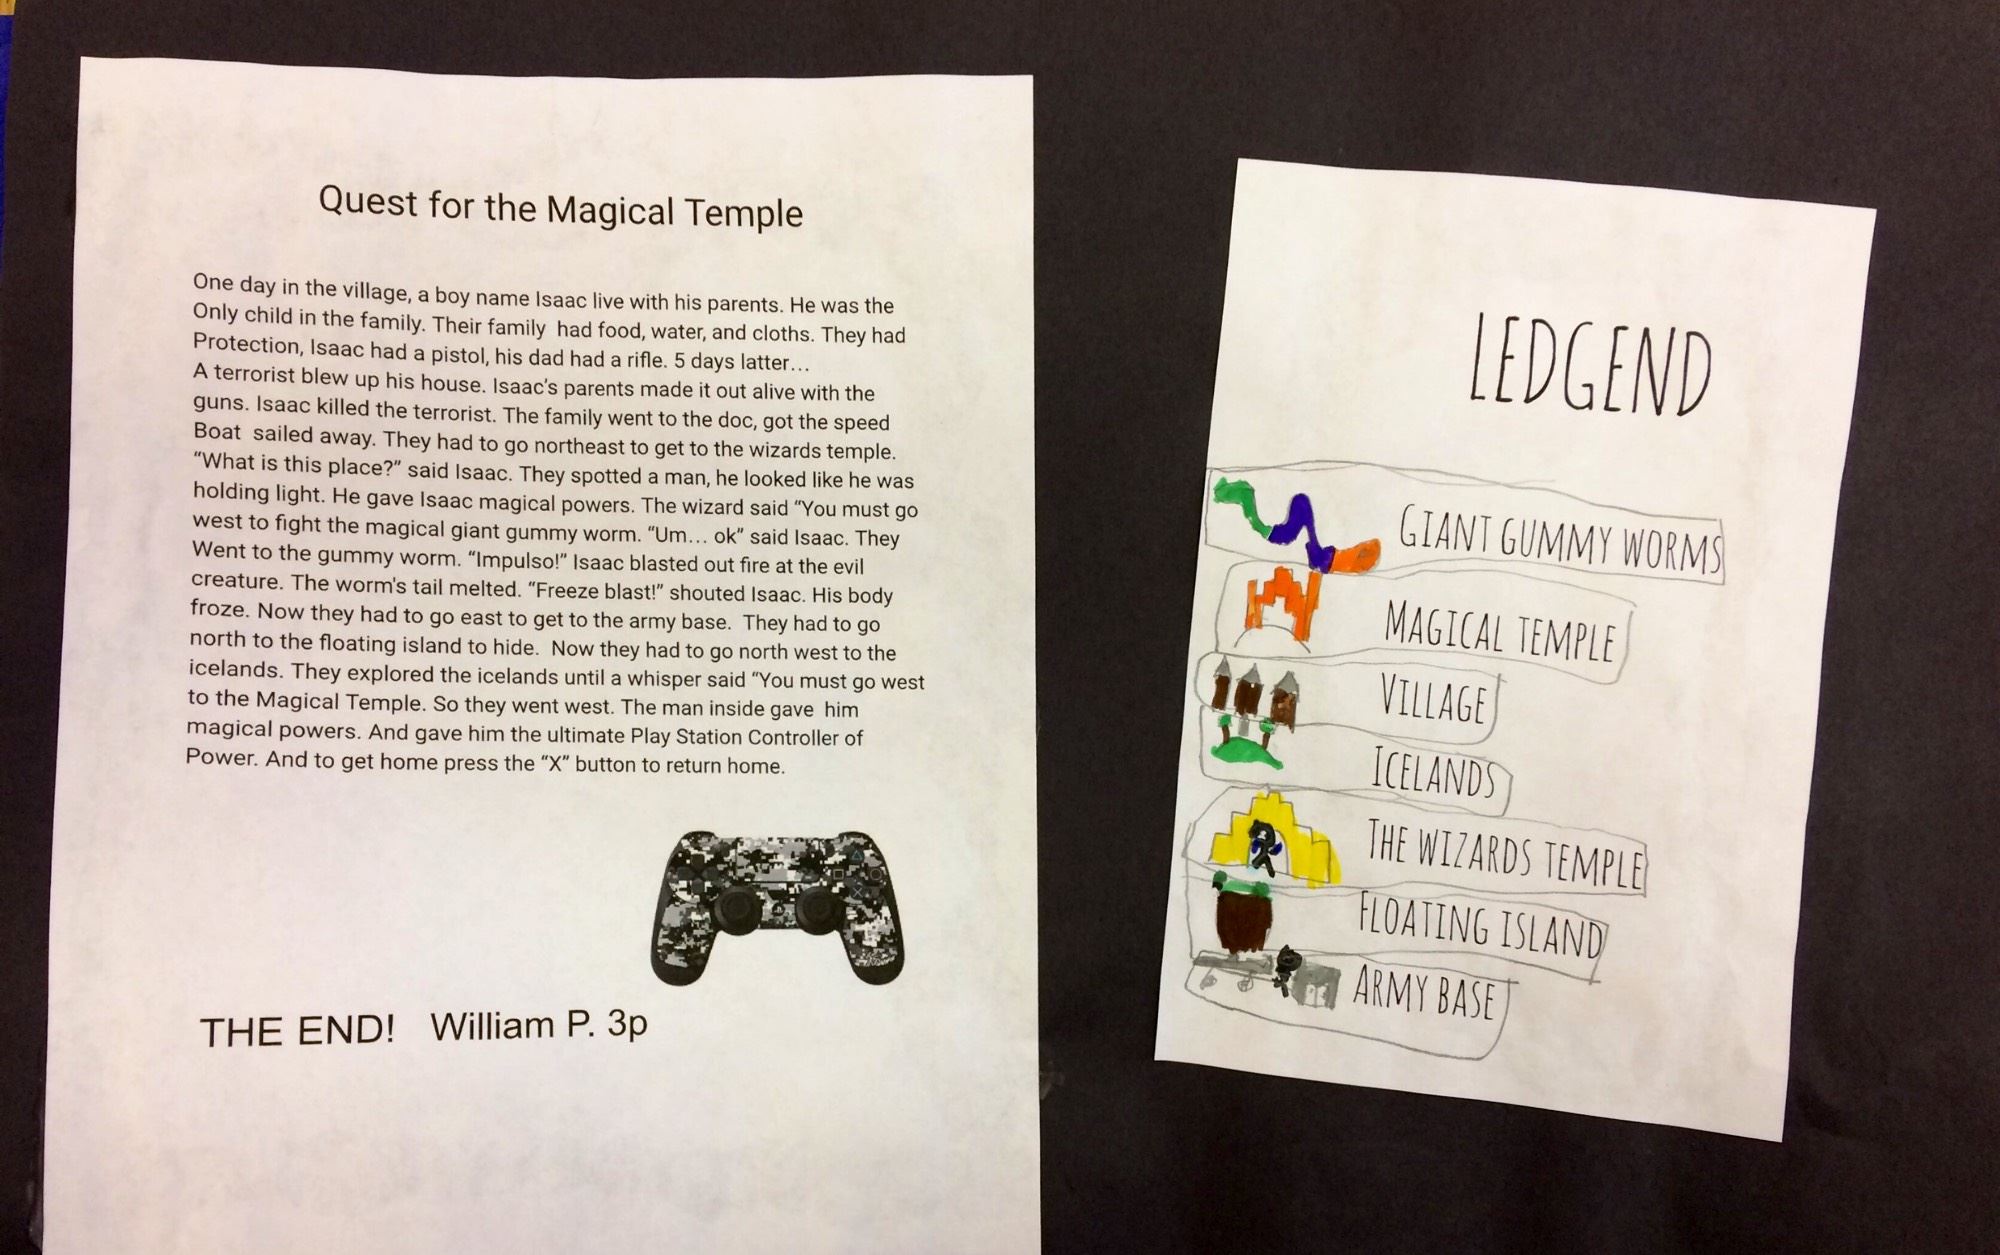 Quest for the Magical Temple
One day in the village, a boy name Isaac live with his parents. He was the
Only child in the family. Their family had food, water, and cloths. They had
Protection, Isaac had a pistol, his dad had a rifle. 5 days latter...
A terrorist blew up his house. Isaac's parents made it out alive with the
guns. Isaac killed the terrorist. The family went to the doc, got the speed
Boat sailed away. They had to go northeast to get to the wizards temple.
“What is this place?” said Isaac. They spotted a man, he looked like he was
holding light. He gave Isaac magical powers. The wizard said “You must go
west to fight the magical giant gummy worm. “Um... ok” said Isaac. They
Went to the gummy worm. “Impulso!” Isaac blasted out fire at the evil
creature. The worm's tail melted. “Freeze blast!” shouted Isaac. His body
froze. Now they had to go east to get to the army base. They had to go
north to the floating island to hide. Now they had to go north west to the
icelands. They explored the icelands until a whisper said “You must go west
to the Magical Temple. So they went west. The man inside gave him
magical powers. And gave him the ultimate Play Station Controller of
Power. And to get home press the “X” button to return home.
THE END! William P. 3p
LEDGEND
GIANT GUMMY WORMS
MAGICAL TEMPLE
VILLAGE
ICELANDS
THE WIZARDS TEMPLE
FLOATING ISLAND
ARMY BASE